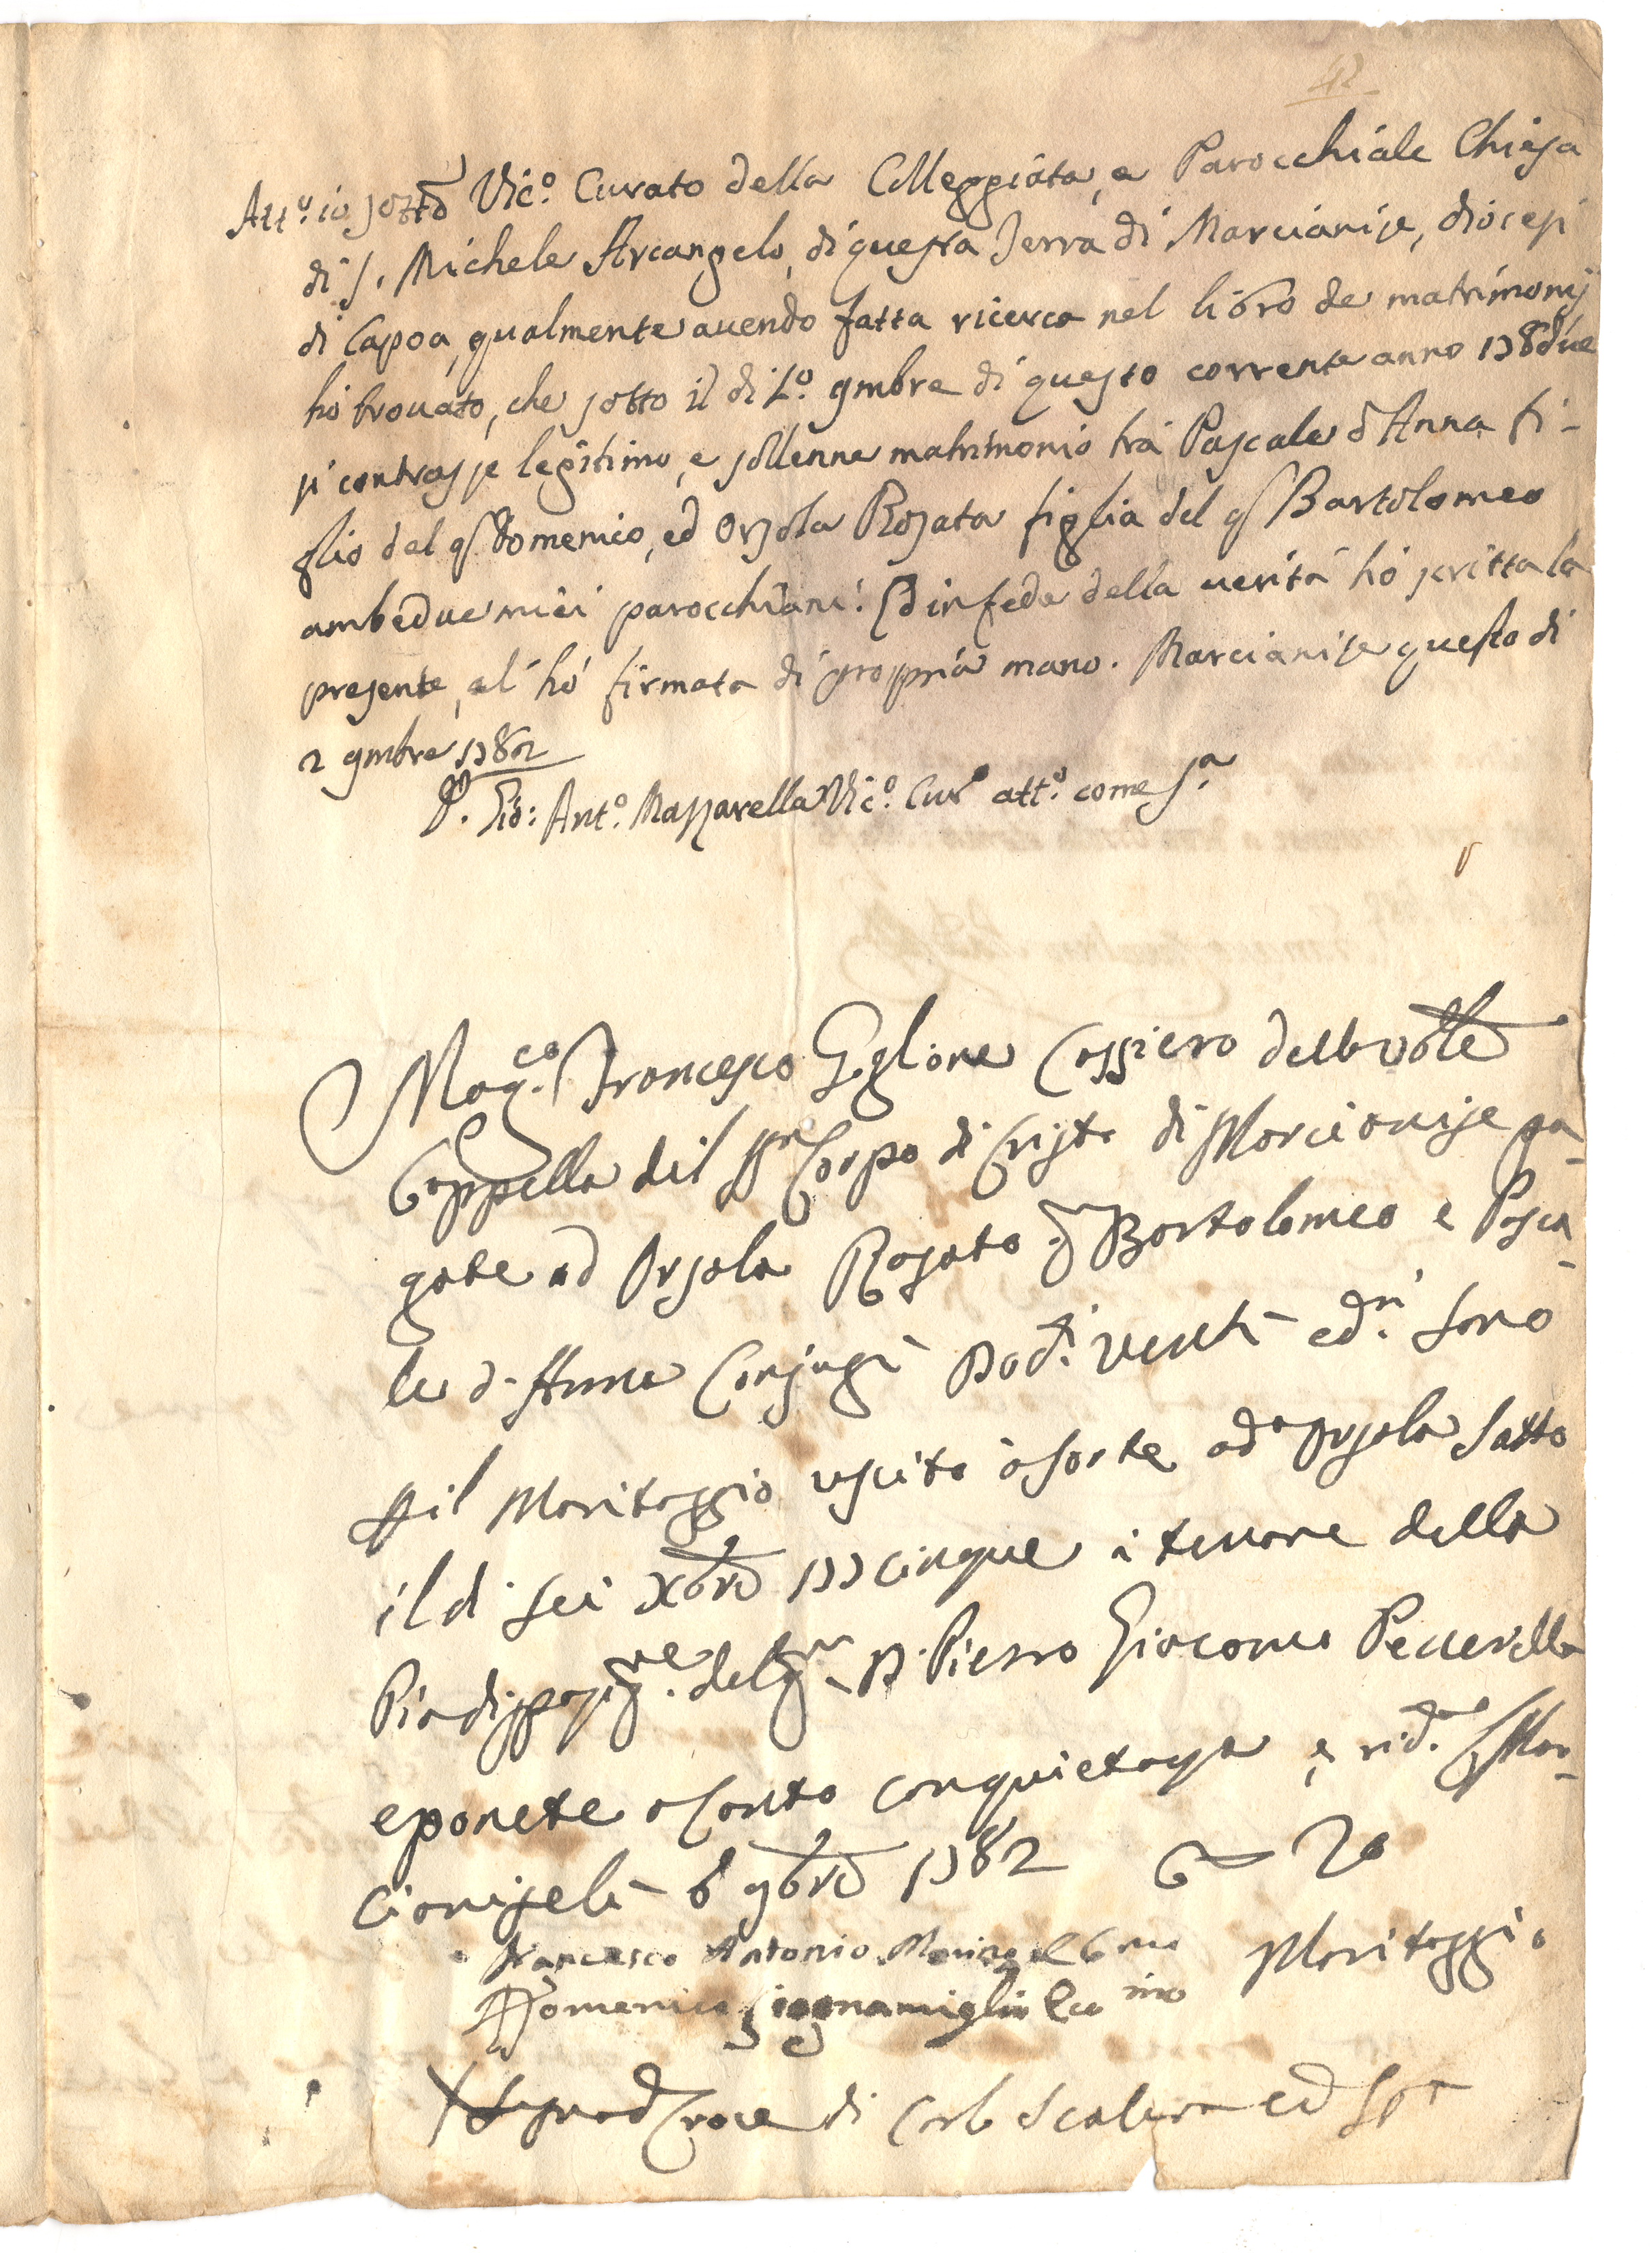 12
Att.º io sottô Vic.º Curato della Colleggiata, e Parocchiale Chiesa
di S. Michele Arcangelo, di questa Terra di Marcianise, diocesi
di Capoa, qualmente avendo fatta ricerca nel libro de matrimonij
hò trovato, che sotto il dì Lº. 9mbre di questo corrente anno 178due
si contrasse legitimo, e sollenne matrimonio trà Pascale d'Anna fi-
glio del q.m Domenico, ed Orsola Rosata figlia del q.m Bartolomeo
ambedue miei parocchiani. Ed in fede della verità hò scritta la
presente, e l'hò firmata di propria mano. Marcianise questo dì
2 9mbre 1782
P. Gio: Ant.º Mazzarella Vic.º Cur.º att.º come S.ª
Mag.co Francesco Goglione Cassiero della
Cappella del SS.mo Corpo di Cristo di Marcianise pa-
gate ad Orsola Rosato q.m Bartolomeo e Pasca-
le d'Anna Conjugi Dod.ti venti e d.ti sono
p il Maritaggio uscito à sorte a d.ª Orsola sotto
il dì sei Xbre 177cinque à tenore della
Pia disposiz.ne del q.m D. Pietro Giacomo Peccerella
e ponete a conto con quietanza, e rid.ª Mar-
cianise li 6 9bre 1782 20
Francesco Antonio Eco.mo Maritaggio
Domenico Eco.mo
+ Segno di Croce di Carlo Scalera ed S.pª